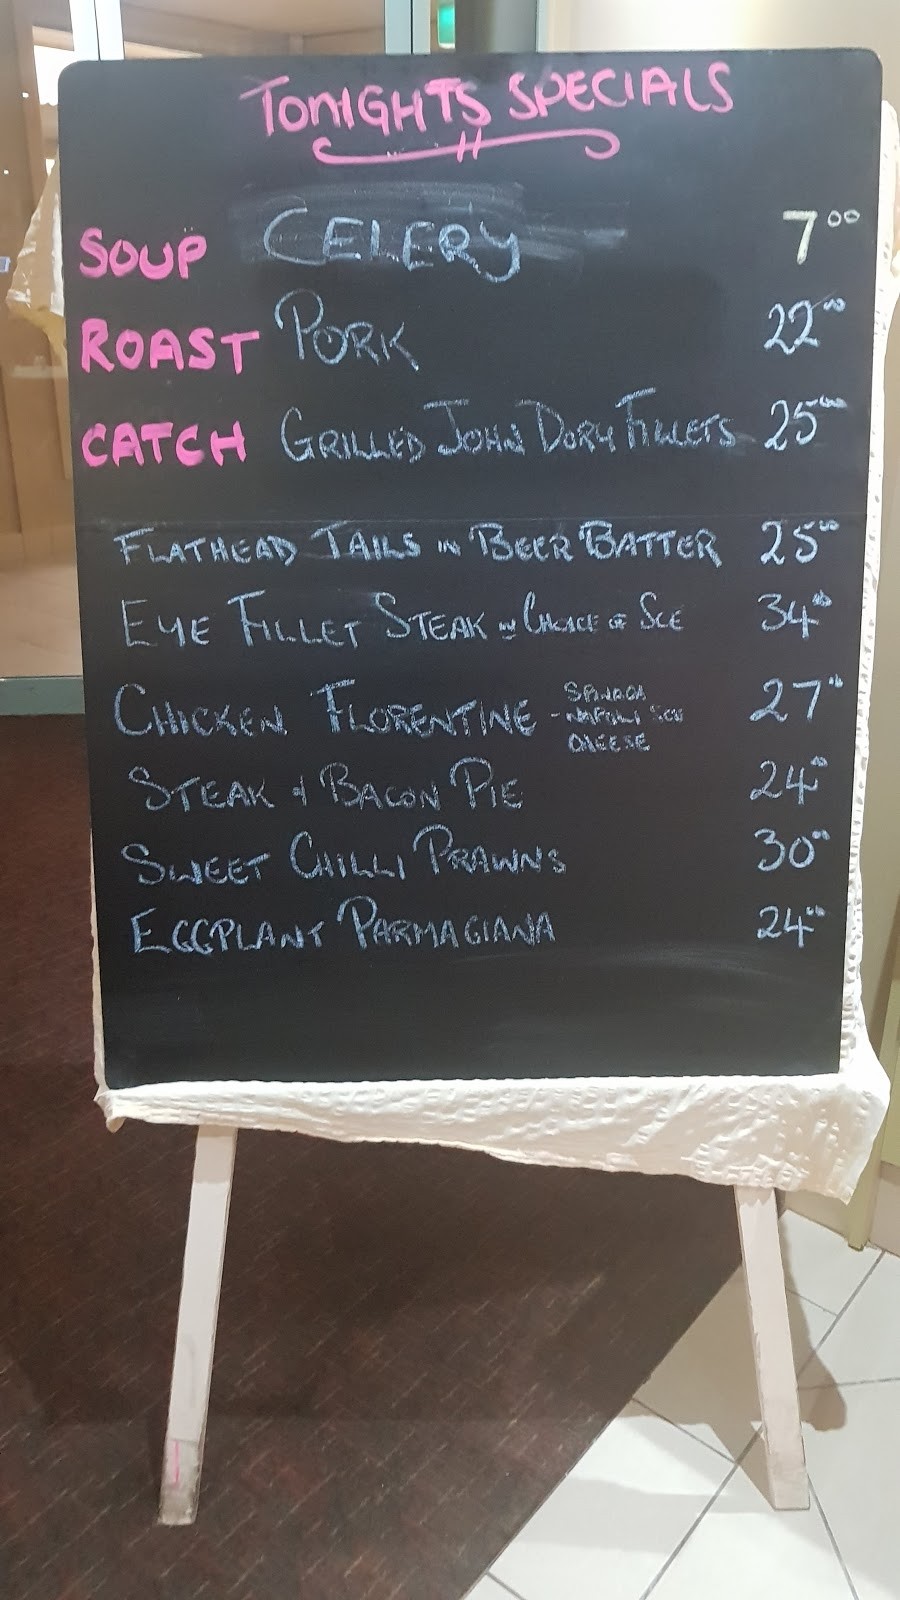 TONIGHTS SPECIALS
SOUP CELERY 7.00
ROAST PORK 22.00
CATCH GRILLED JOHN DORY FILLETS 25.00
FLATHEAD TAILS IN BEER BATTER 25.00
EYE FILLET STEAK W CHOICE OF SCE 34.00
CHICKEN FLORENTINE - SPINACH NAPOLI SCE CHEESE 27.00
STEAK & BACON PIE 24.00
SWEET CHILLI PRAWNS 30.00
EGGPLANT PARMAGIANA 24.00